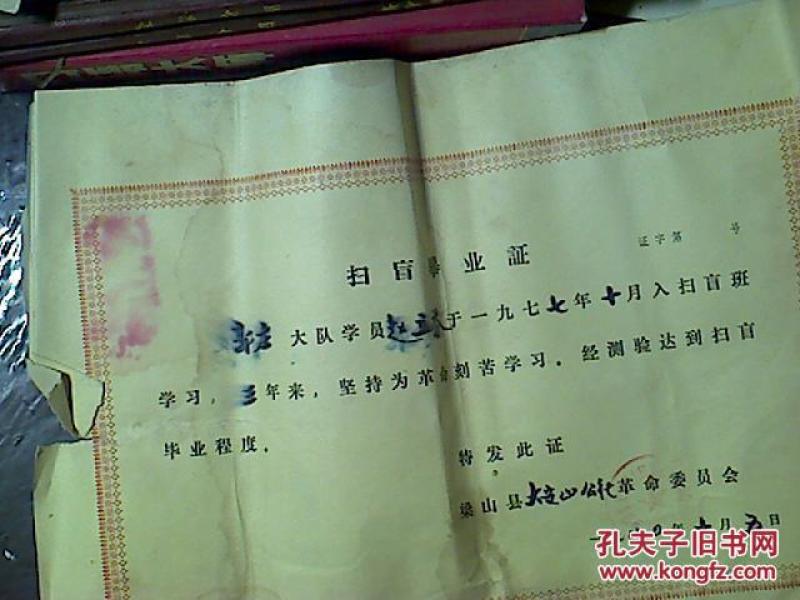 证字第 号
扫盲毕业証
大队学员赵三 于一九七七年十月入扫盲班
学习，三年来，坚持为革命刻苦学习。经测验达到扫盲
毕业程度。
特发此证
梁山县 山公社革命委员会
一九 年 月 日
孔夫子旧书网
www.kongfz.com